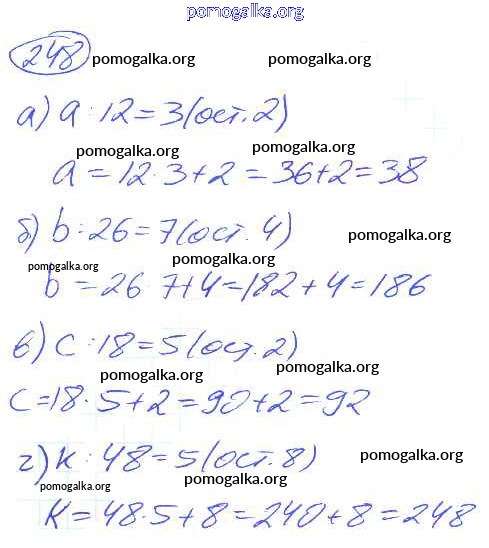 pomogalka.org
248 pomogalka.org pomogalka.org
а) a : 12 = 3 (ост. 2)
pomogalka.org pomogalka.org
a = 12 · 3 + 2 = 36 + 2 = 38
б) b : 26 = 7 (ост. 4) pomogalka.org
pomogalka.org pomogalka.org
b = 26 7 + 4 = 182 + 4 = 186
в) c : 18 = 5 (ост. 2)
pomogalka.org pomogalka.org
c = 18 · 5 + 2 = 90 + 2 = 92
г) k : 48 = 5 (ост. 8) pomogalka.org
pomogalka.org pomogalka.org
k = 48 · 5 + 8 = 240 + 8 = 248